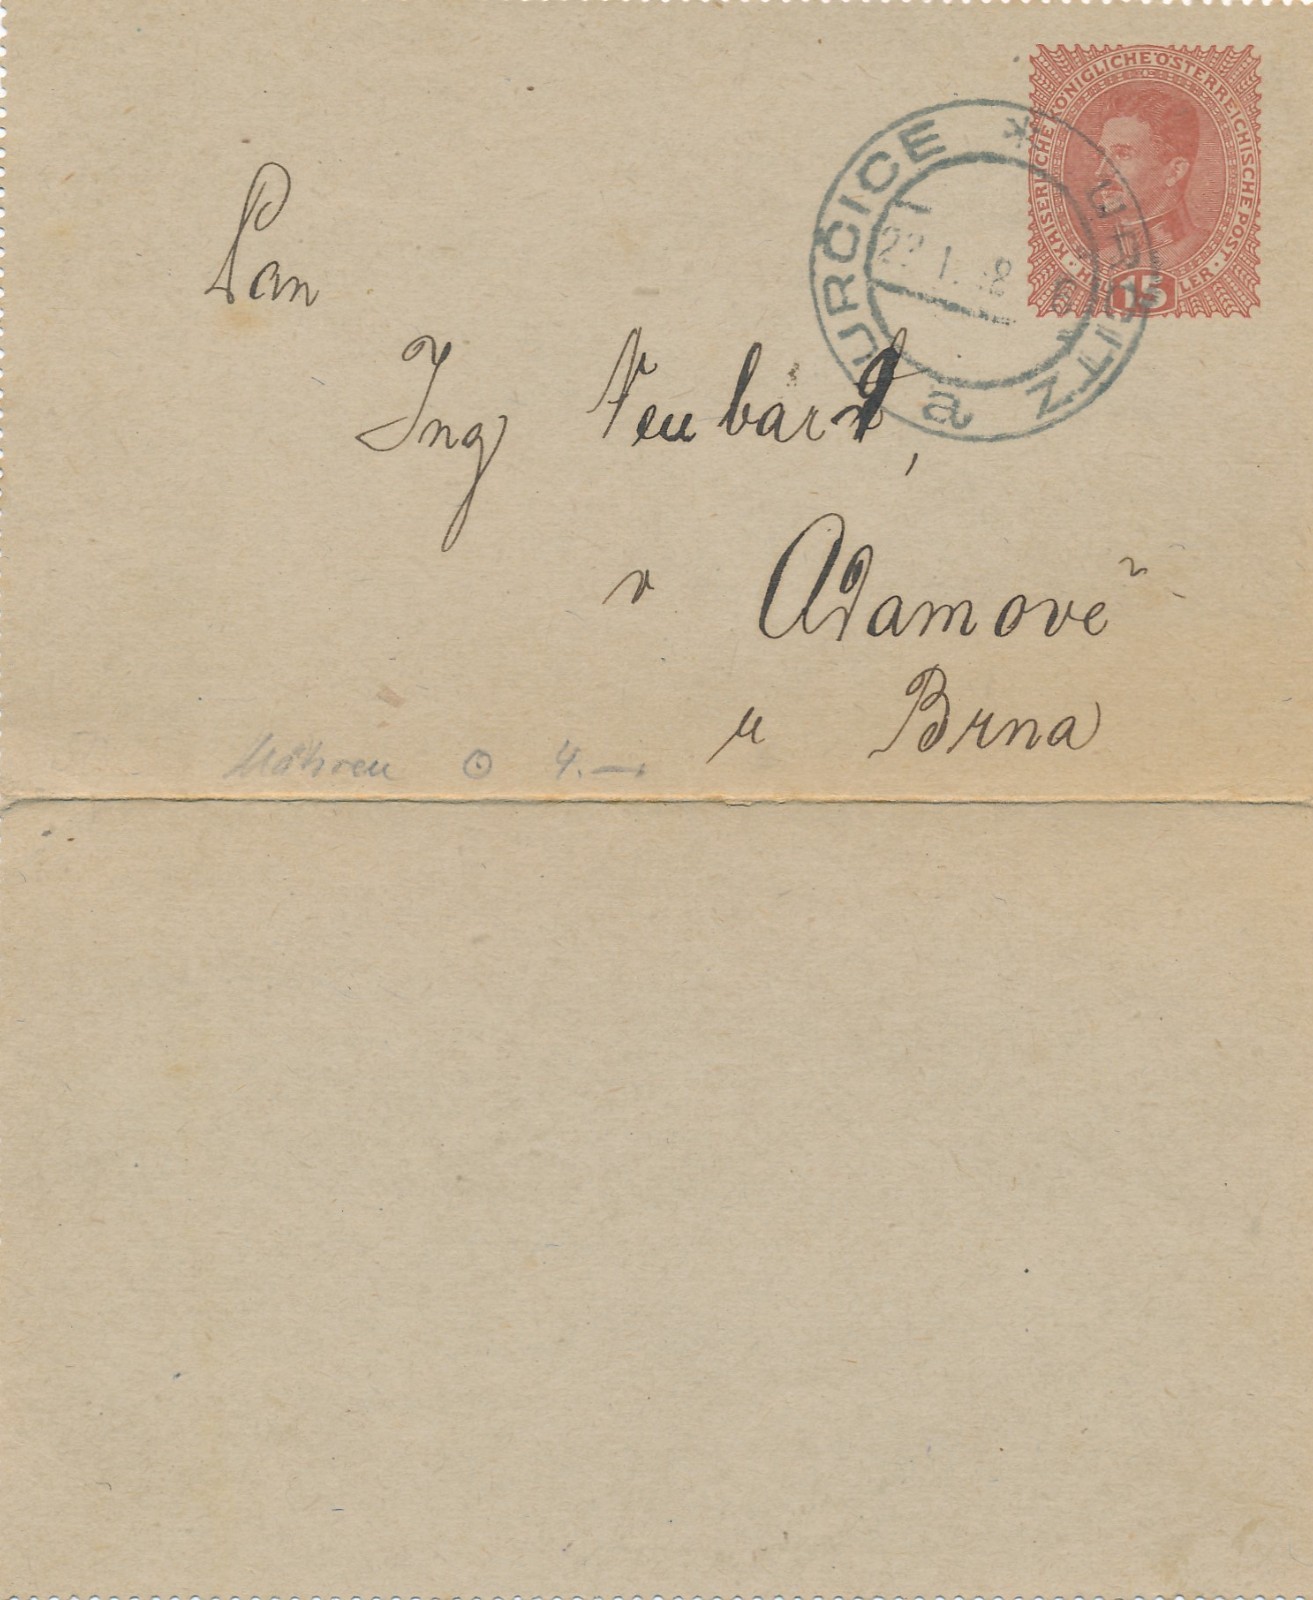 KAISERLICHE KÖNIGLICHE ÖSTERREICHISCHE POST
15
HELLER
URČICE * URTSCHITZ a
Pan
Ing Neubárt,
v Adamově
u Brna
Mähren ⊙ 4.—